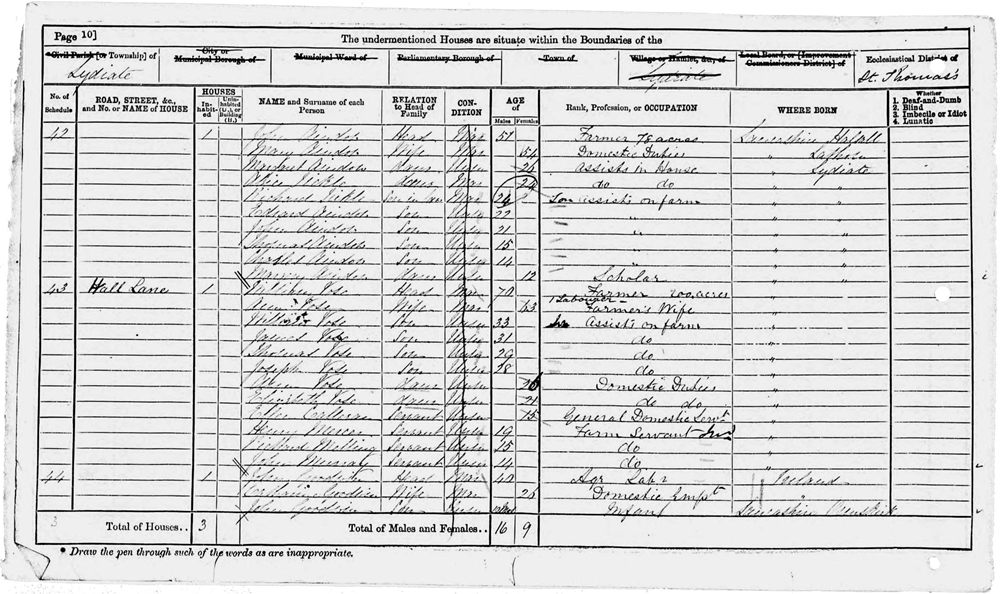 Page 10]
The undermentioned Houses are situate within the Boundaries of the
Civil Parish [or Township] of
City or Municipal Borough of
Municipal Ward of
Parliamentary Borough of
Town of
Village or Hamlet, &c., of
Local Board, or [Improvement Commissioners District] of
Ecclesiastical District of
Lydiate
Lydiate
St. Thomas's
No. of Schedule
ROAD, STREET, &c., and No. or NAME of HOUSE
HOUSES
Inhabited
Uninhabited (U.), or Building (B.)
NAME and Surname of each Person
RELATION to Head of Family
CONDITION
AGE
Males
Females
Rank, Profession, or OCCUPATION
WHERE BORN
Whether
1. Deaf-and-Dumb
2. Blind
3. Imbecile or Idiot
4. Lunatic
42 1 John Head Mar 51 Farmer 78 acres Lancashire Halsall
Mary Wife Mar 54 Domestic Duties " Lathom
Margaret daur Unm 26 Assists in House " Lydiate
Alice daur Mar 24 do do " "
Richard Son in law Mar 24 Son Assists on farm " "
Edward Son Unm 22 " " "
John Son Unm 21 " " "
Thomas Son Unm 15 " " "
Son Unm 14 " " "
daur Unm 12 Scholar " "
43 Hall Lane 1 William Vose Head Mar 70 Farmer 200 acres "
1 Labourer
Ann Vose Wife Mar 63 Farmer's Wife "
William Vose Son Unm 33 Assists on farm "
James Vose Son Unm 31 do "
Thomas Vose Son Unm 29 do "
Joseph Vose Son Unm 28 do "
Ann Vose daur Unm 26 Domestic Duties "
Elizabeth Vose daur Unm 21 do do "
Ellen Servant Unm 15 General Domestic Servt "
Henry Mercer Servant Unm 19 Farm Servant "
Richard Welling Servant Unm 15 do "
John Murray Servant Unm 14 do "
44 1 John Head Mar 40 Agr Labr Ireland
Wife Mar 26 Domestic Empt "
John Son Unm Infant Lancashire Ormskirk
3
Total of Houses.. 3
Total of Males and Females.. 16 9
* Draw the pen through such of the words as are inappropriate.